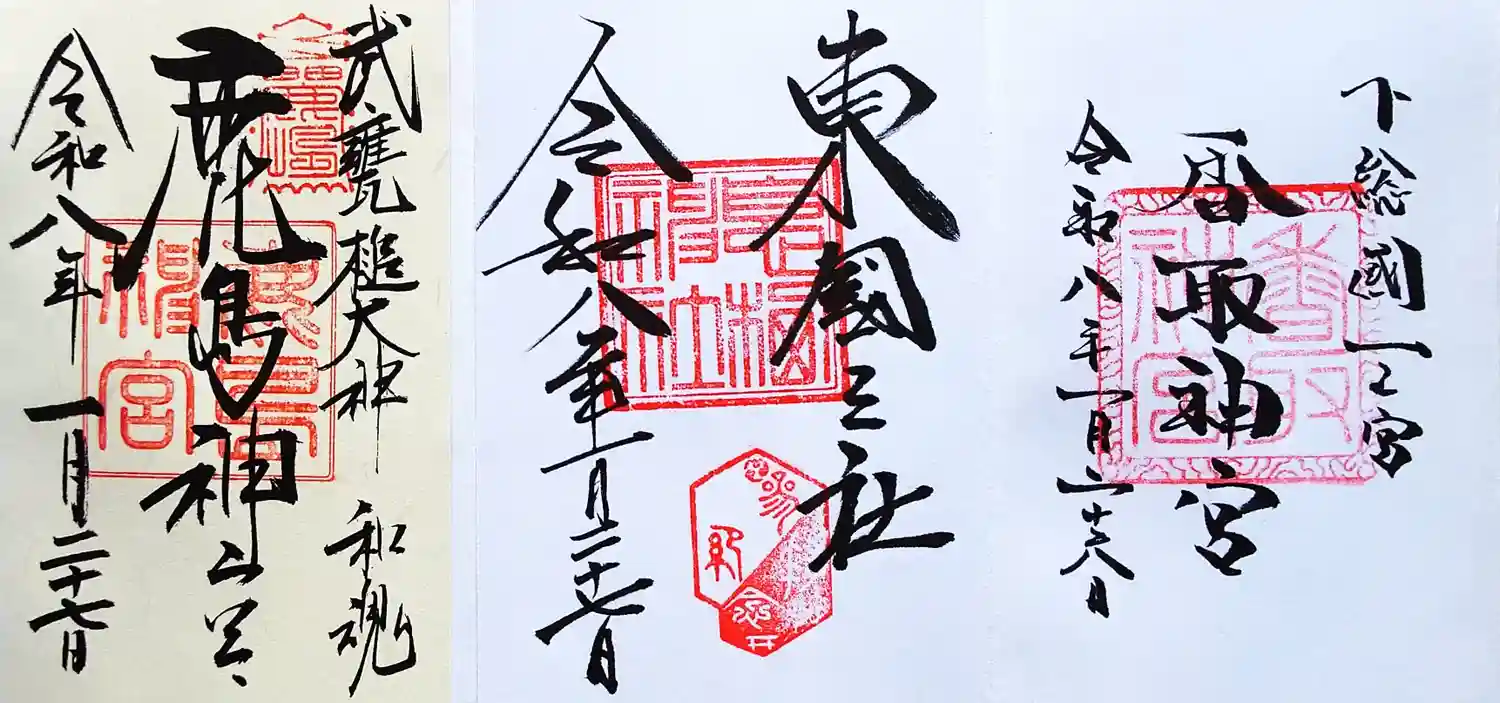 武甕槌大神 和魂
鹿島神宮
令和八年一月二十七日
鹿島神宮
東國三社
令和八年一月二十七日
息栖神社
下総國一之宮
香取神宮
令和八年一月二十八日
香取神宮